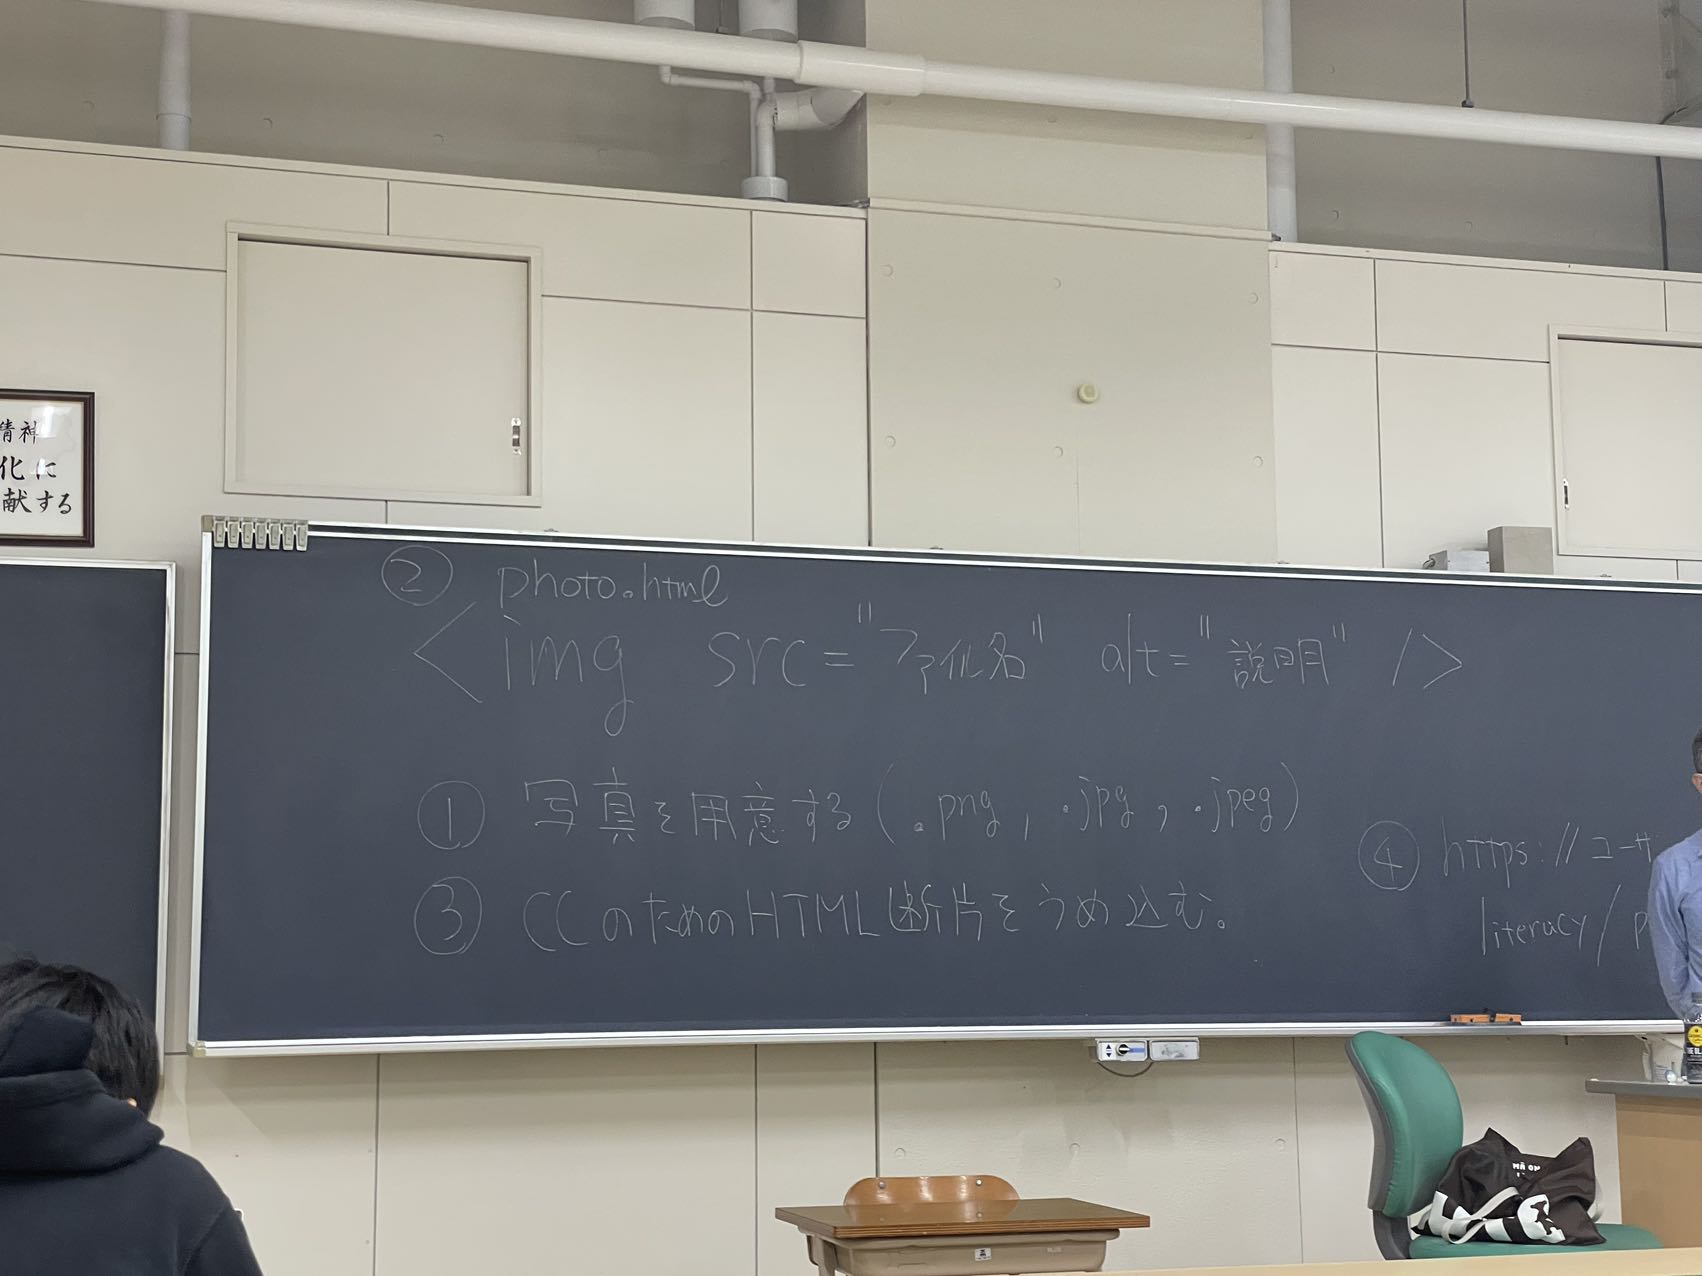 精神
化に
献する
② photo.html
<img src="ファイル名" alt="説明" />
① 写真を用意する(.png, .jpg, .jpeg)
③ CCのためのHTML断片をうめ込む。
④ https://ユーザ
literacy/p